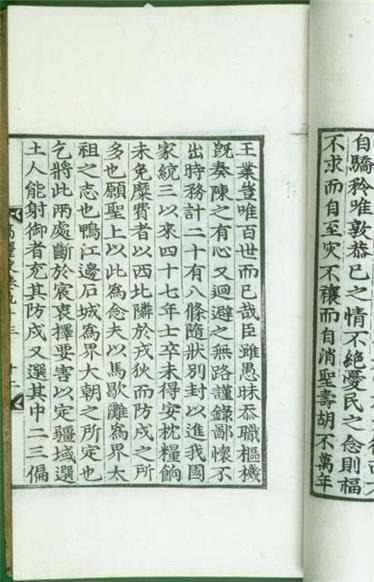 自驕矜唯敦恭已之情不絶憂民之念則福
不求而自至灾不禳而自消聖壽胡不萬年
王業豈唯百世而已哉臣雖愚昧忝職樞機
旣奏陳之有心又迴避之無路謹錄鄙懷不
出時務計二十有八條隨狀別封以進我國
家統三以來四十七年士卒未得安枕糧餉
未免糜費者以西北隣於戎狄而防戍之所
多也願聖上以此爲念夫以馬歇灘爲界太
祖之志也鴨江邊石城爲界大朝之所定也
乞將此兩處斷於宸衷擇要害以定疆域選
土人能射御者充其防戍又選其中二三偏
高麗史卷九十三 十六